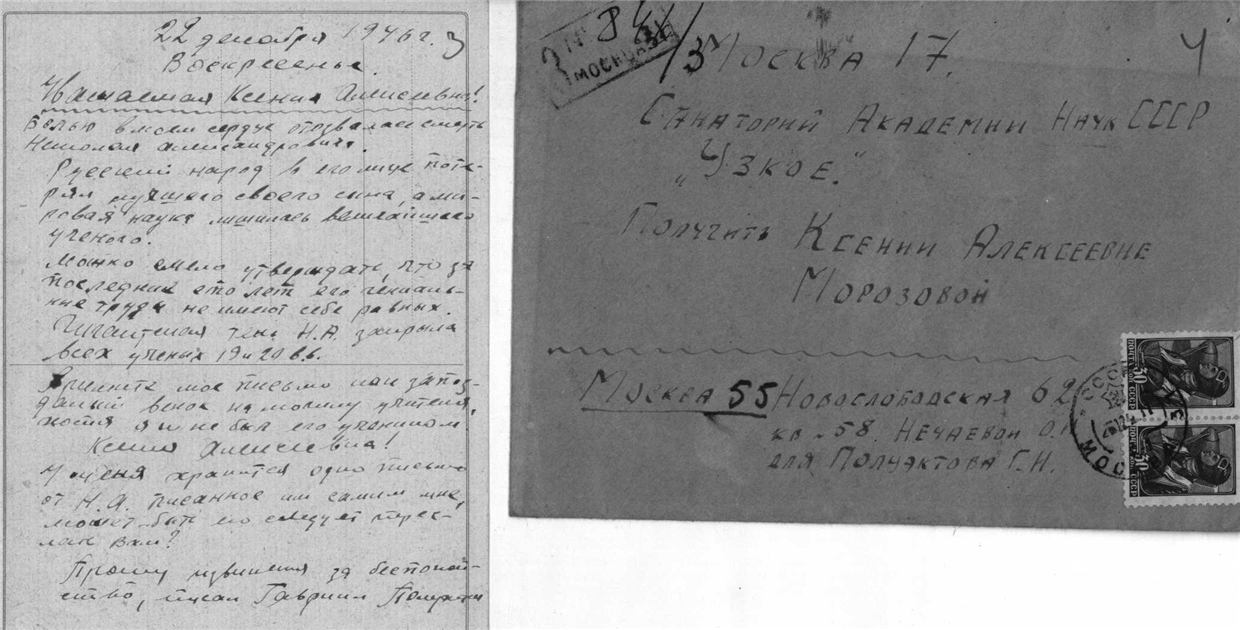 22 декабря 1946 г.
Воскресенье.
Уважаемая Ксения Алексеевна!
Болью в моем сердце отозвалась смерть
Николая Александровича.
Русский народ в его лице поте-
рял лучшего своего сына, а ми-
ровая наука лишилась величайшего
ученого.
Можно смело утверждать, что за
последние сто лет его гениаль-
ные труды не имеют себе равных.
Гигантская тень Н.А. закрыла
всех ученых 19 и 20 вв.
Примите мое письмо как запоз-
далый венок на могилу учителя,
хотя я и не был его учеником
Ксения Алексеевна!
У меня хранится одно письмо
от Н.А. писанное им самим мне,
может-быть его следует
вам?
Прошу извинения за беспокой-
ство, писал Гавриил
МОСКВА
Москва 17.
Ч
Санаторий Академии Наук СССР
„Узкое."
Получить Ксении Алексеевне
Морозовой
Москва 55 Новослободская 62
кв. 58. Нечаевой О.
для Полуэктова Г.И.
ПОЧТА СССР 30
ПОЧТА СССР 30
СССР
МОСКВА